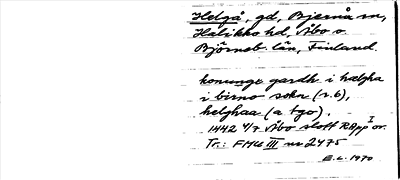 Helgå, gd, Bjernå sn,
Halikko hd, Åbo o.
Björneb. län, Finland.
konungs gardh i hælgha
i birno sokn (r.6),
helghaa (a tgo).
1442 4/7 Åbo slott RApp I or.
Tr.: FMU III nr 2475
E.L. 1970